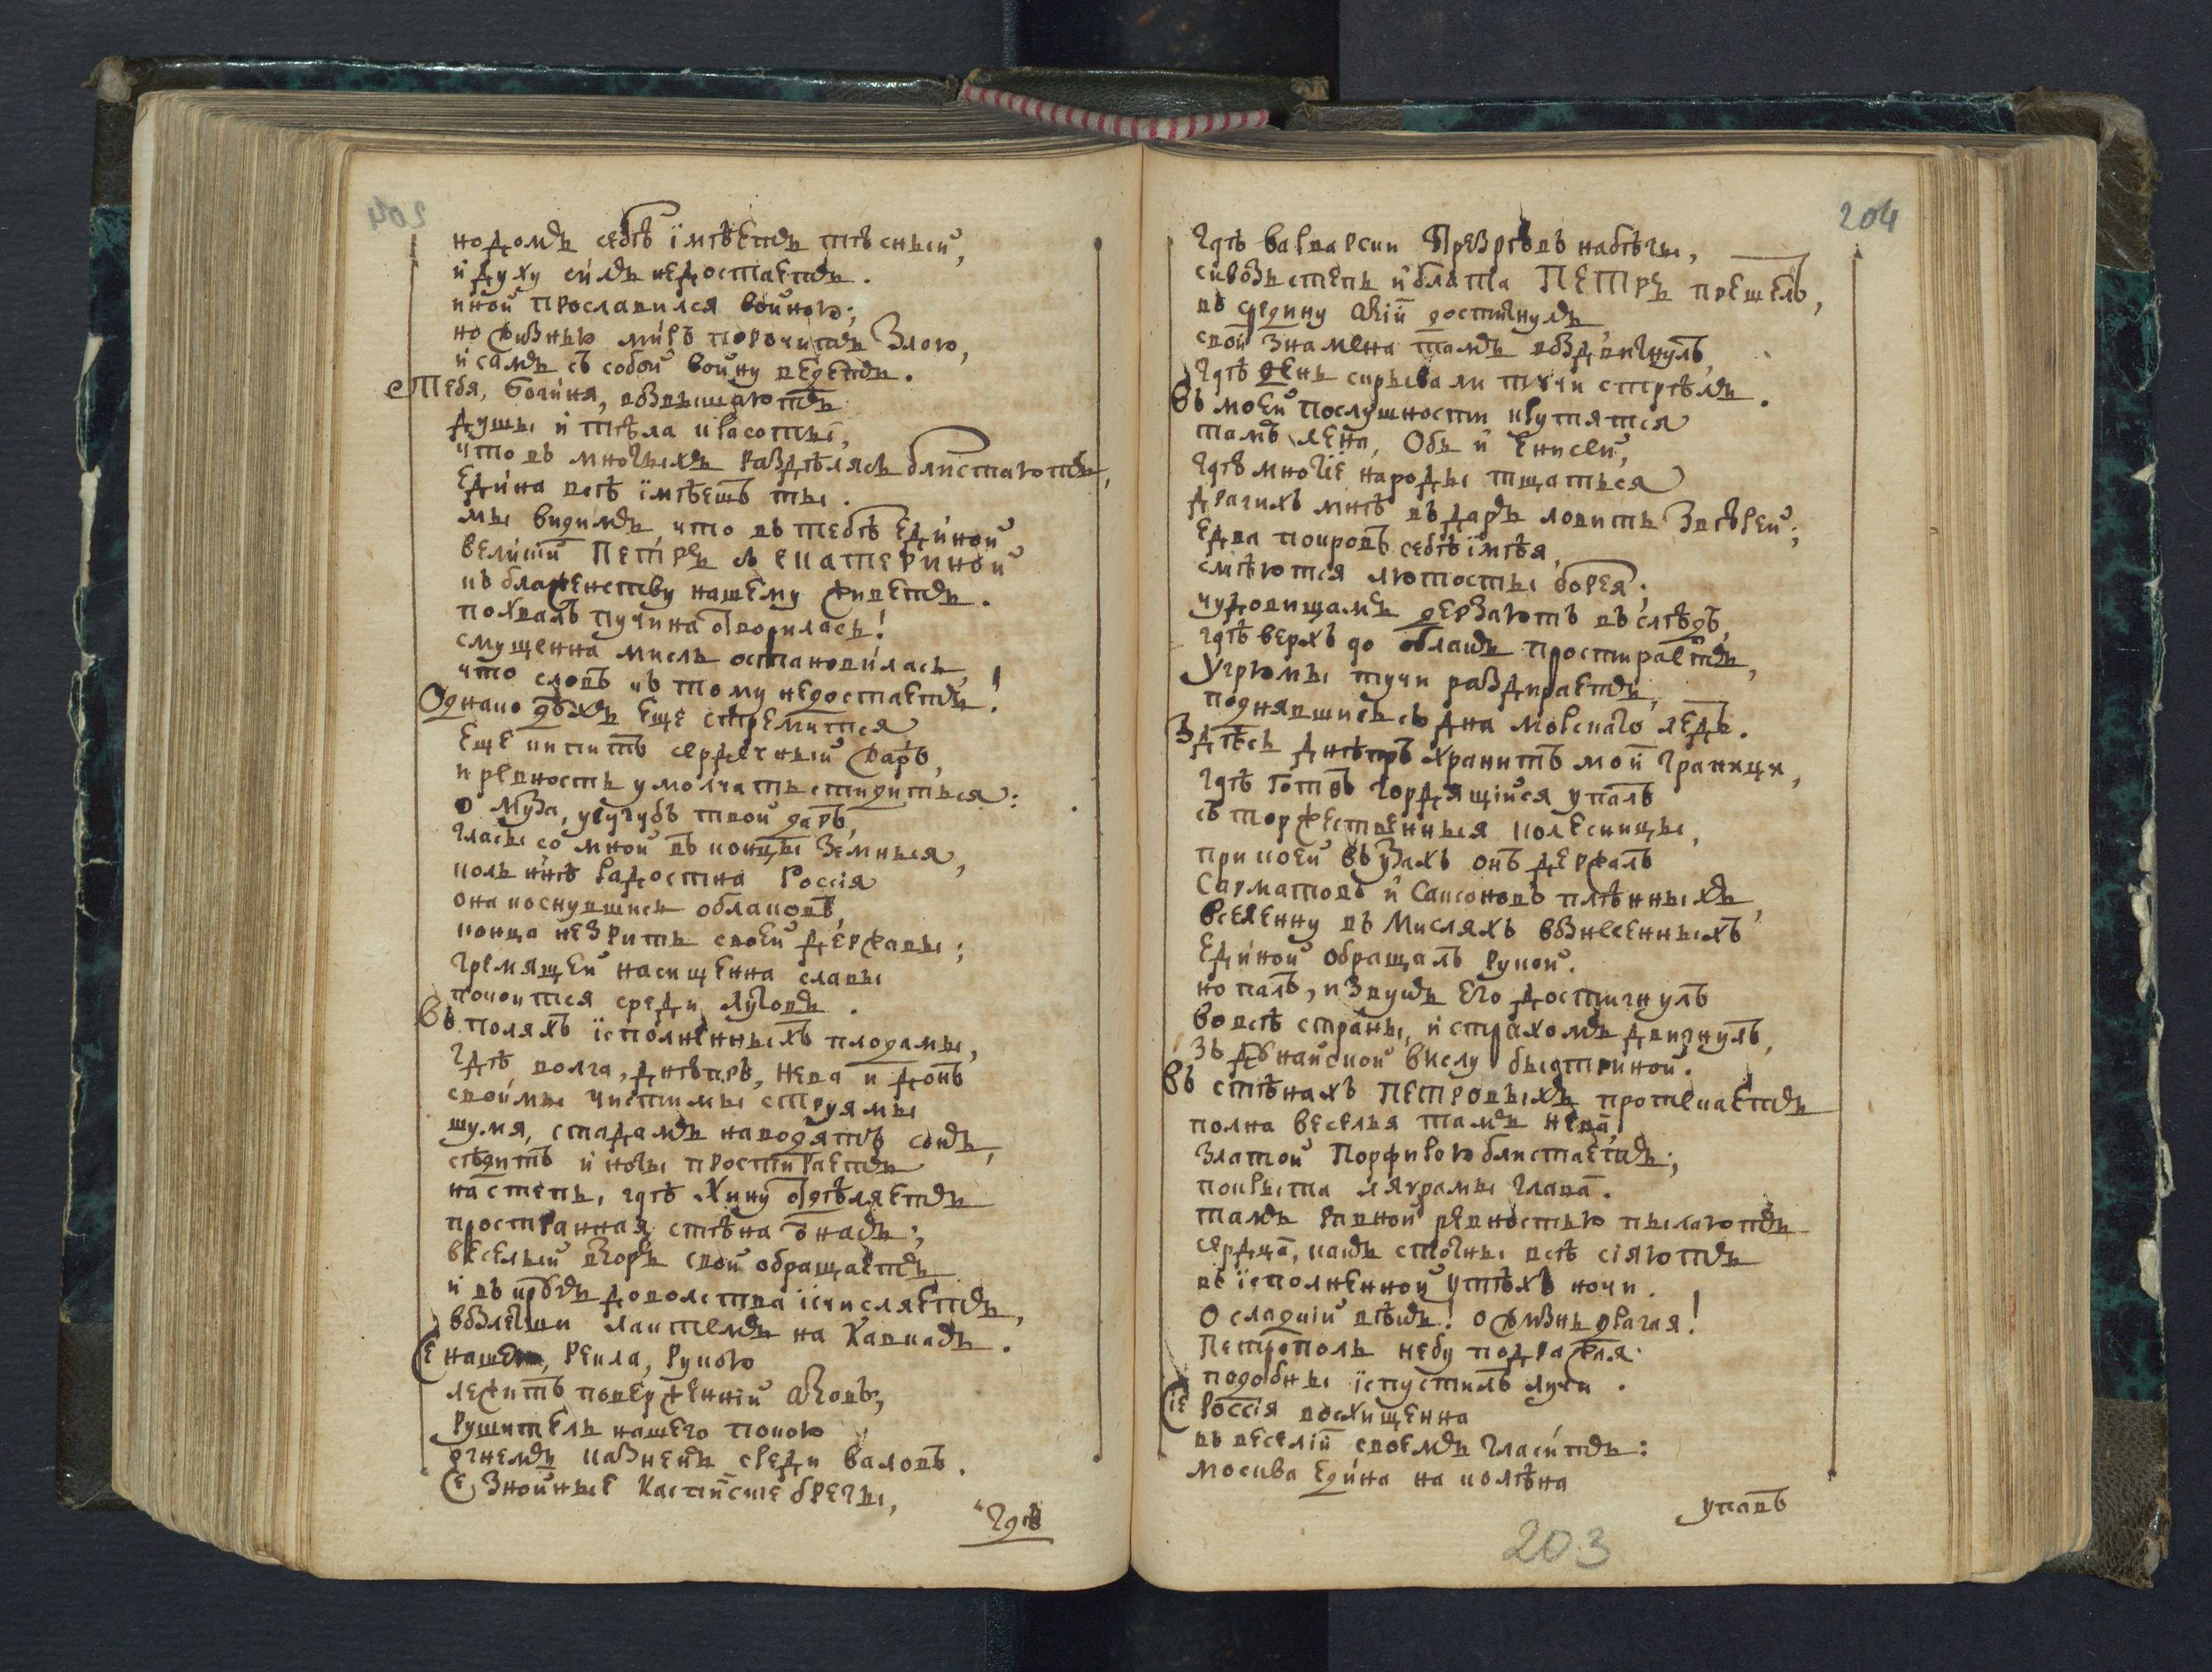 но домъ себѣ імѣетъ тѣсный,
и духу силъ недостаетъ.
иной прославился войною;
но жизнью миръ порочитъ злою,
и самъ съ собой войну ведетъ.
Тебя, богиня, возвышаютъ
души и тѣла красоты,
что въ многихъ раздѣлясь блистаютъ,
едина всѣ імѣешъ ты.
мы видимъ, что въ тебѣ единой
великій Петръ съ екатериной
къ блаженству нашему живетъ.
похвалъ пучина отворилась!
смущенна мисль остановилась,
что словъ къ тому недостаетъ!
Однако духъ еще стремится
еще кипитъ сердечный жаръ,
и ревность умолчать стидиться:
о Муза, усугубь твой даръ,
гласы со мной въ концы земныя,
коль ннѣ радостна Россія
она коснувшись облаковъ,
конца незрить своей державы;
гремящей насищенна славы
покоится среди луговъ.
Въ поляхъ ісполненныхъ плодамы,
Гдѣ волга, днѣпръ, Нева и донъ
своимы чистимы струямы
шумя, стадамъ наводятъ сонъ,
сѣдитъ и ногы простираетъ
на степь, гдѣ Хину отдѣляетъ
пространная стѣна ѿ насъ;
веселый взоръ свой обращаетъ
и въ кругъ доволства ісчисляетъ,
возлегши лактемъ на Кавказъ.
Се нашею, рекла, рукою
лежитъ поверженній азовъ,
рушитель нашего покою
огнемъ казненъ среди валовъ.
Се знойные Каспійскіе брегы,
Гдѣ
204
Гдѣ варварски Презрѣвъ набѣгы,
сквозь степь и блата ПЕТРЪ прешелъ,
въ средину азіи достигнулъ
свои знамена тамъ воздвигнулъ,
Гдѣ день скрывали тучи стрѣлъ.
Въ моей послушности крутятся
тамъ лена, Обь и Енисей,
гдѣ многіе народы тщаться
драгихъ мнѣ въ даръ ловить звѣрей;
едва покровъ себѣ імѣя,
смѣются лютосты борея;
чудовищамъ дерзаютъ въ слѣдъ,
гдѣ верхъ до облакъ простираетъ,
Угрюмы тучи раздираетъ,
поднявшись съ дна морскаго ледъ.
Здѣсь Днѣпръ хранитъ мои границы,
гдѣ Готъ гордящійся упалъ
съ торжественныя колесницы,
при коей въ узахъ онъ держалъ
Сарматовъ и Саксоновъ плѣнныхъ,
вселенну въ Мисляхъ вознесенныхъ
единой обращалъ рукой.
но палъ, и звукъ его достигнулъ
во всѣ страны, и страхомъ двигнулъ,
зъ дунайской вислу быстриной.
Въ стѣнахъ ПЕТРОВЫХЪ протекаетъ
полна веселья тамъ нева,
Златой Порфирою блистаетъ;
покрыта лаурамы глава.
тамъ равной ревностью пылаютъ
сердца, какъ стогны всѣ сіяютъ
въ ісполненной утѣхъ ночи.
О сладкій вѣкъ! о жизнь драгая!
Петрополь небу подражая
подобны іспустилъ лучи.
Сіе Россія восхищенна
въ веселіи своемъ гласитъ:
Москва едина на колѣна
упавъ
203